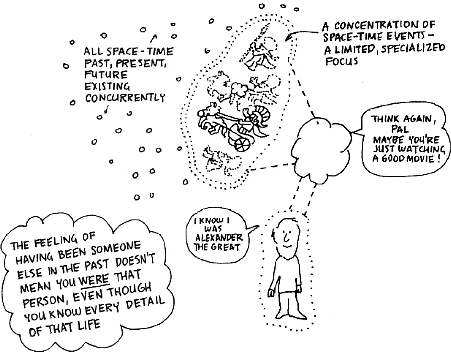 ALL SPACE-TIME
PAST, PRESENT,
FUTURE
EXISTING
CONCURRENTLY
A CONCENTRATION OF
SPACE-TIME EVENTS-
A LIMITED, SPECIALIZED
FOCUS
THINK AGAIN,
PAL
MAYBE YOU'RE
JUST WATCHING
A GOOD MOVIE!
I KNOW I
WAS
ALEXANDER
THE GREAT
THE FEELING OF
HAVING BEEN SOMEONE
ELSE IN THE PAST DOESN'T
MEAN YOU WERE THAT
PERSON, EVEN THOUGH
YOU KNOW EVERY DETAIL
OF THAT LIFE